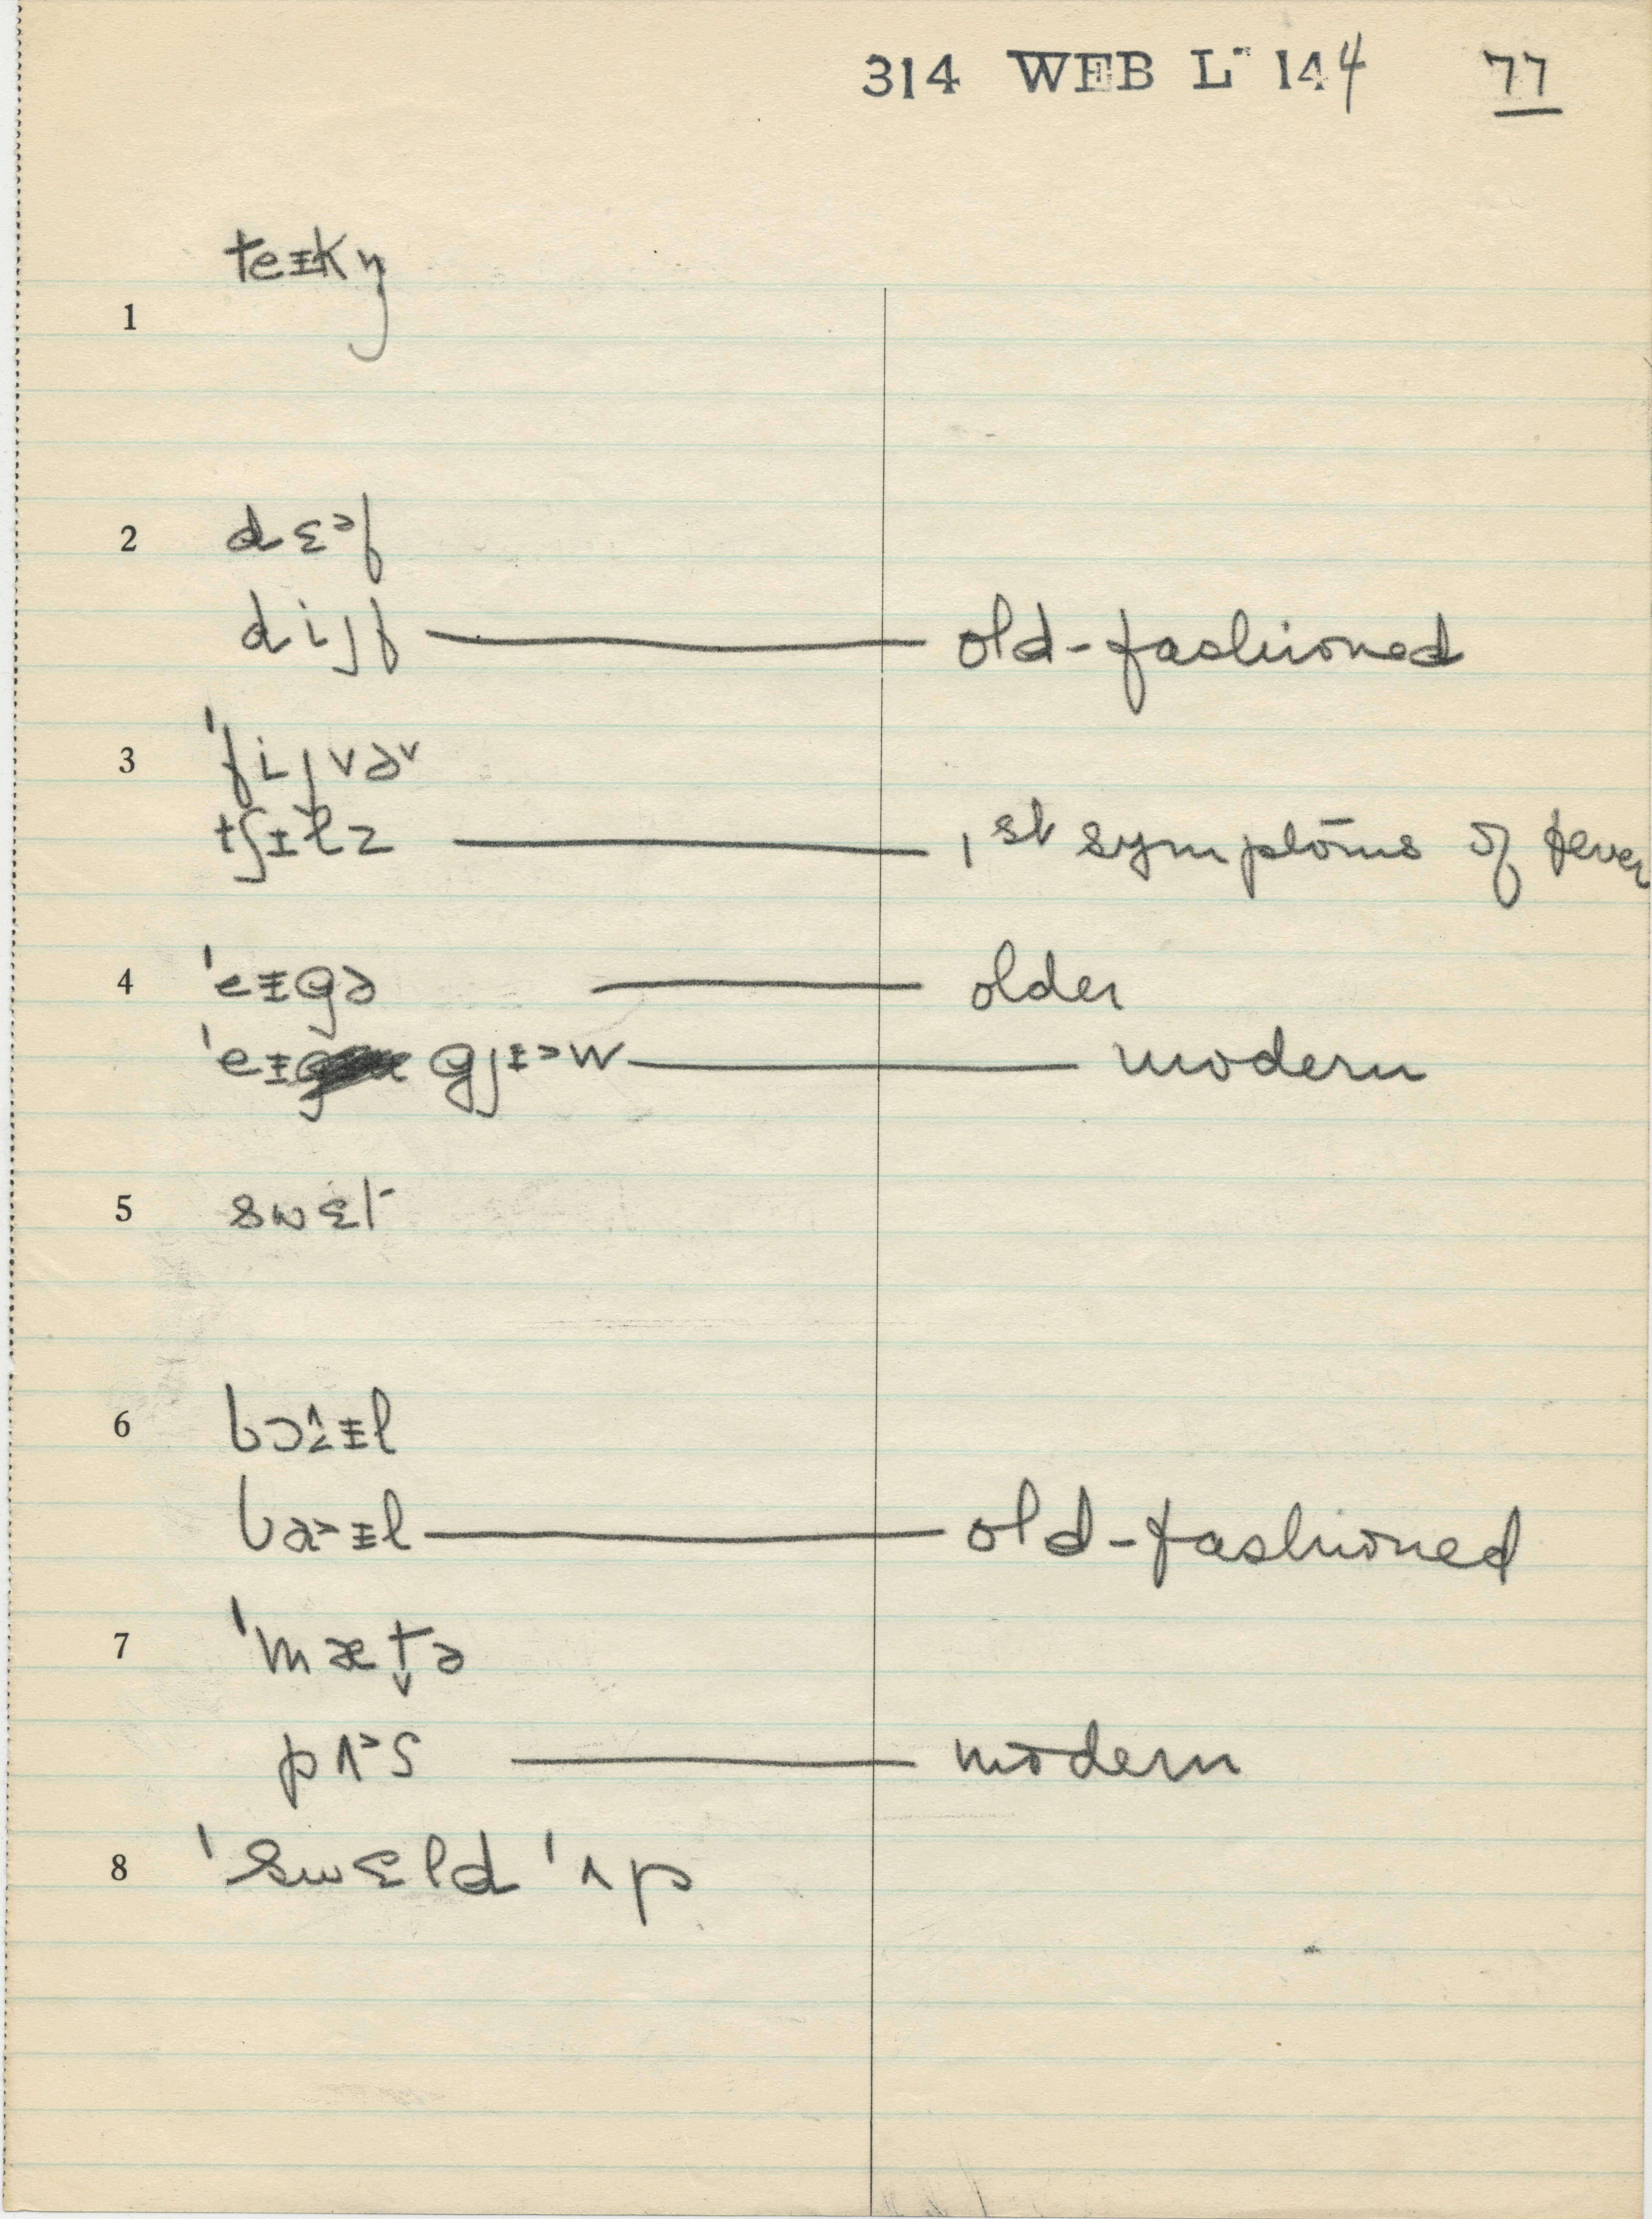 314 WEB L- 144 77
1 teᵻkŋ
2 dɛᵊf
dijf — old-fashioned
3 'fijvə˅
tʃᵻɫz — 1st symptoms of fever
4 'eᵻgə — older
'eᵻ gjᵻ>w — modern
5 swɛt
6 bɔᵻl
ba>ᵻl — old-fashioned
7 'mætə̬
pʌ>s — modern
8 'swɛld 'ʌp